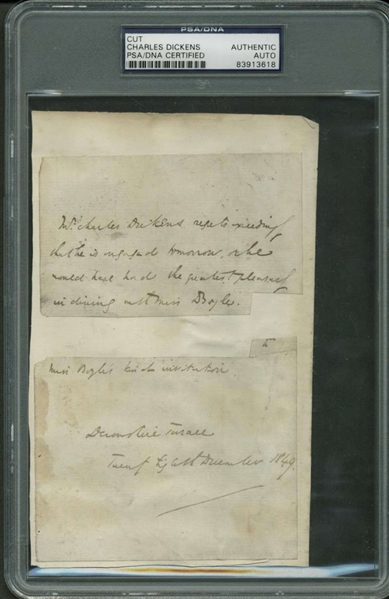 PSA/DNA
CUT
CHARLES DICKENS
PSA/DNA CERTIFIED
AUTHENTIC
AUTO
83913618
Mr. Charles Dickens regrets exceedingly
that he is engaged tomorrow, or he
would have had the greatest pleasure
in dining with Miss Boyle.
Miss Boyle's kind invitation
Devonshire Terrace
Twenty Eighth December 1849